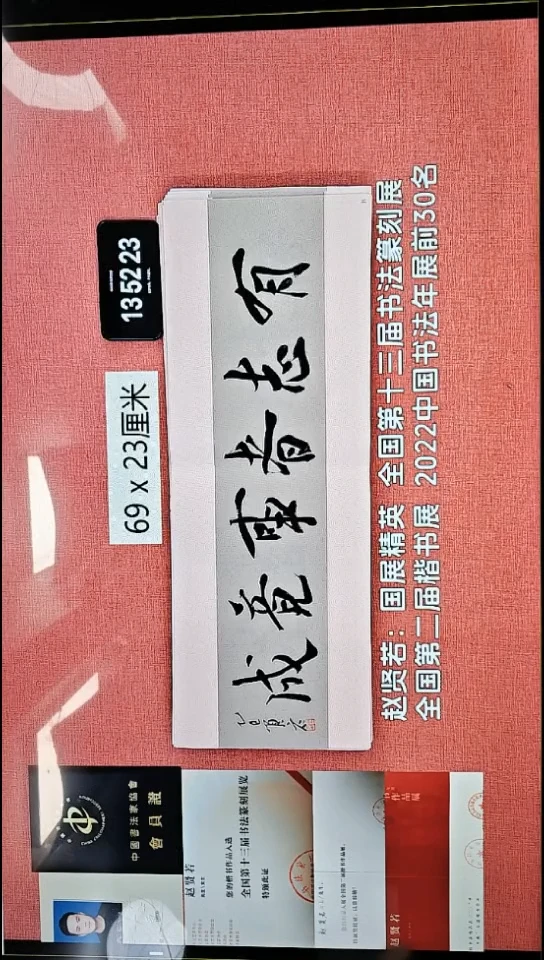 13 52 23
69 x 23厘米
有志者事竟成
赵贤若：国展精英 全国第十三届书法篆刻展
全国第二届楷书展 2022中国书法年展前30名
中國書法家協會
會員證
赵贤若
您的楷书作品入选
全国第十三届书法篆刻展览
特颁此证
赵贤若